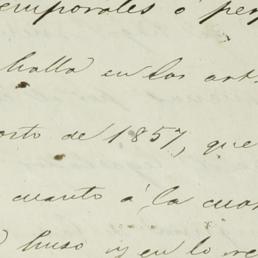 temporales ó per
halla en los art
orto de 1857, que
cuanto á la cuar
huso y en lo re